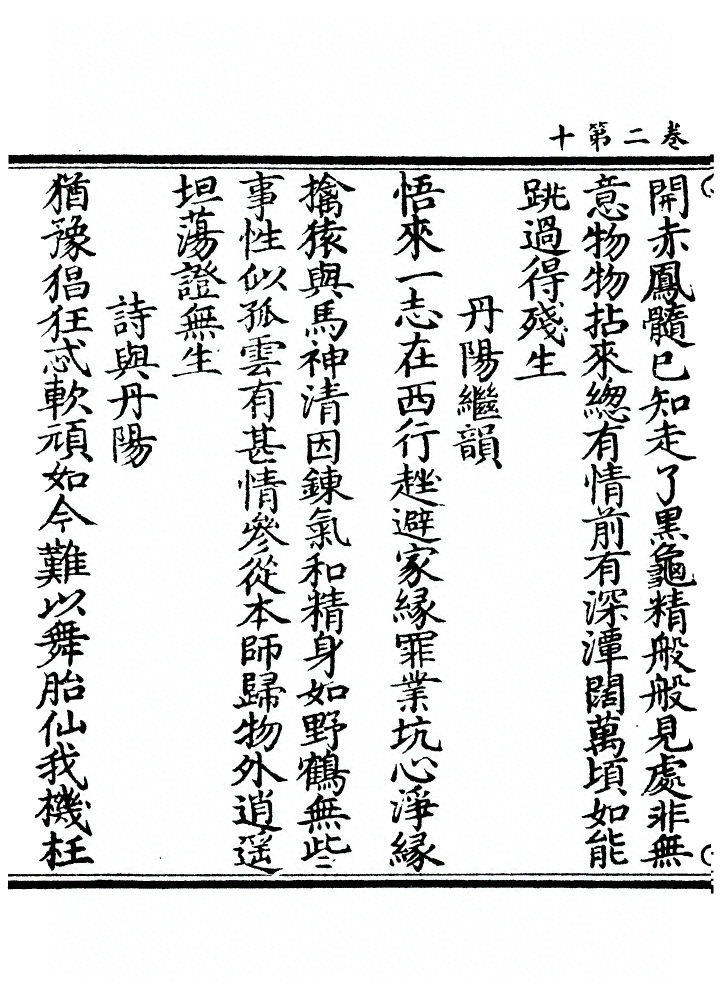 卷二第十
開赤鳳髓已知走了黑龜精般般見處非無
意物物拈來緫有情前有深潭闊萬頃如能
跳過得殘生
丹陽繼韻
悟來一志在西行趖避家緣罪業坑心淨緣
擒猿與馬神清因鍊氣和精身如野鶴無些
事性似孤雲有甚情參從本師歸物外逍遥
坦蕩證無生
詩與丹陽
猶豫猖狂忒軟頑如今難以舞胎仙我機枉